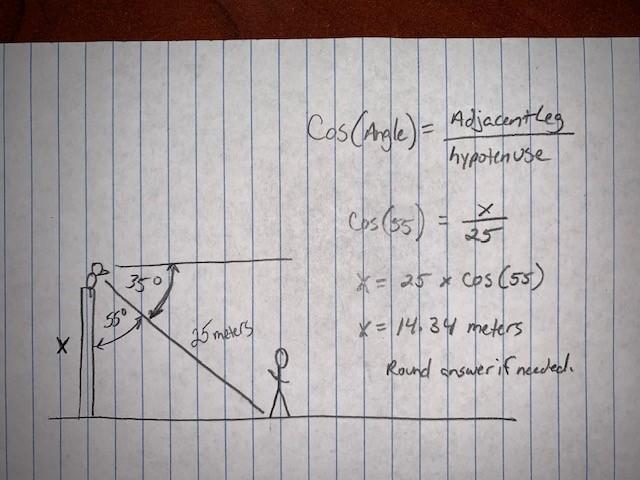 Cos(Angle) = Adjacent Leg
hypotenuse
Cos(55) = x
25
x = 25 x Cos(55)
x = 14.34 meters
Round answer if needed.
35°
55°
25 meters
X